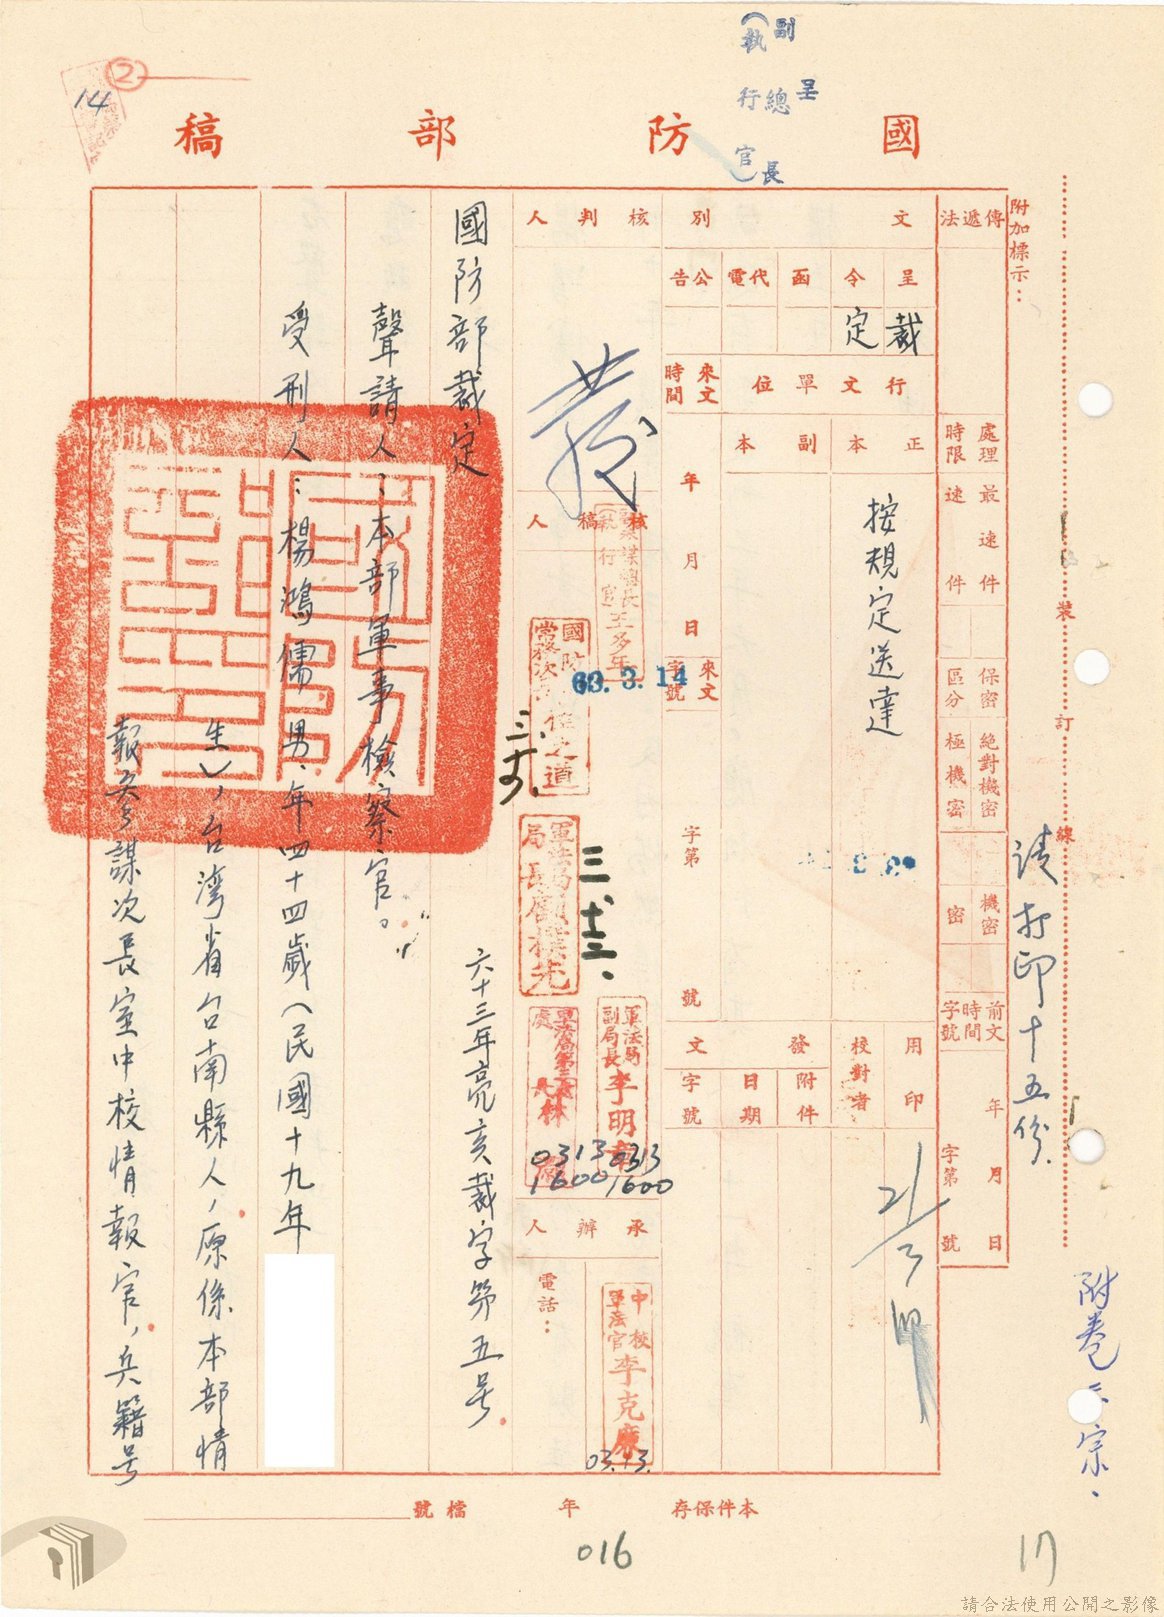 副 呈
(執行官) 總長
國防部稿
14
②
附加標示：
傳遞法
處理時限
最速件
速件
保密區分
絕對機密
極機密
機密
密
前文時間字號
年 月 日
字第 號
文別
呈
令
函
代電
公告
裁定
行文單位
正本
副本
按規定送達
來文時間
年 月 日
來文字號
字第 號
用印
校對者
發文
附件
日期
字號
21/3
核判人
核稿人
63.3.14
國防
三.十三.
軍法局
局長
軍法局
副局長李明
0313
1600
0313
1600
承辦人
電話：
中校
軍法官李克廉
03.13.
國防部裁定
六十三年亮亥裁字第五号
聲請人：本部軍事檢察官。
受刑人：楊鴻儒男、年四十四歲（民國十九年
生），台湾省台南縣人，原係本部情
報參謀次長室中校情報官，兵籍号
裝訂線
請打印十五份.
附卷三宗.
本件保存 年
檔號
016
17
請合法使用公開之影像